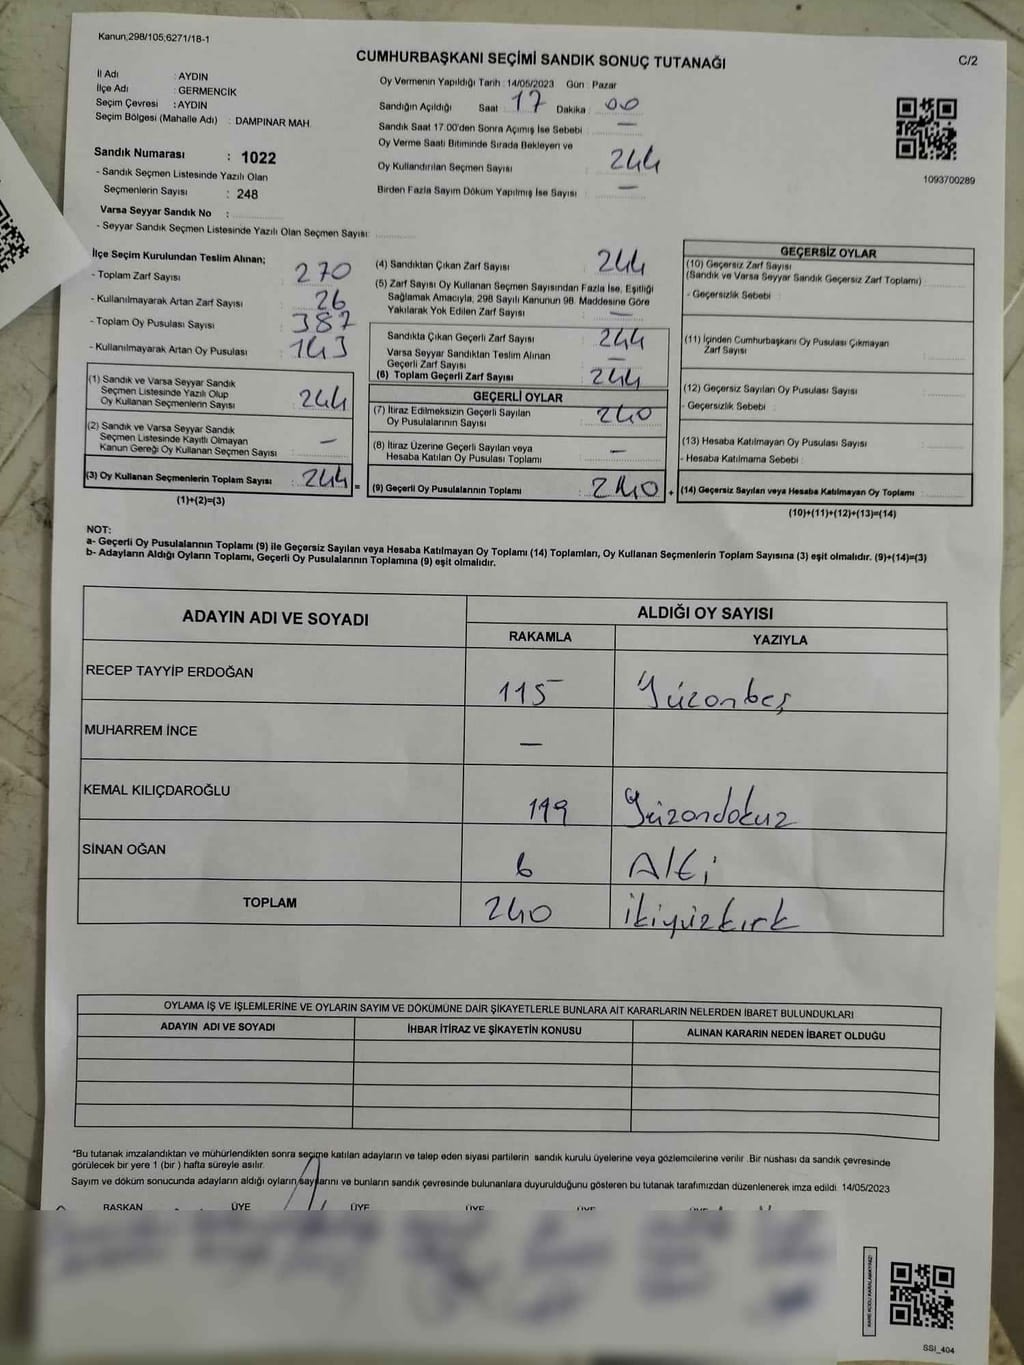 Kanun,298/105,6271/18-1
CUMHURBAŞKANI SEÇİMİ SANDIK SONUÇ TUTANAĞI
C/2
İl Adı : AYDIN
İlçe Adı : GERMENCİK
Seçim Çevresi : AYDIN
Seçim Bölgesi (Mahalle Adı) : DAMPINAR MAH.
Sandık Numarası : 1022
- Sandık Seçmen Listesinde Yazılı Olan
Seçmenlerin Sayısı : 248
Varsa Seyyar Sandık No :
- Seyyar Sandık Seçmen Listesinde Yazılı Olan Seçmen Sayısı:
Oy Vermenin Yapıldığı Tarih : 14/05/2023 Gün : Pazar
Sandığın Açıldığı Saat : 17 Dakika : 00
Sandık Saat 17.00'den Sonra Açımış İse Sebebi : —
Oy Verme Saati Bitiminde Sırada Bekleyen ve
Oy Kullandırılan Seçmen Sayısı : 244
Birden Fazla Sayım Döküm Yapılmış İse Sayısı : —
1093700289
İlçe Seçim Kurulundan Teslim Alınan;
- Toplam Zarf Sayısı : 270
- Kullanılmayarak Artan Zarf Sayısı : 26
- Toplam Oy Pusulası Sayısı : 387
- Kullanılmayarak Artan Oy Pusulası : 143
(1) Sandık ve Varsa Seyyar Sandık
Seçmen Listesinde Yazılı Olup
Oy Kullanan Seçmenlerin Sayısı : 244
(2) Sandık ve Varsa Seyyar Sandık
Seçmen Listesinde Kayıtlı Olmayan
Kanun Gereği Oy Kullanan Seçmen Sayısı : —
(3) Oy Kullanan Seçmenlerin Toplam Sayısı : 244 =
(1)+(2)=(3)
(4) Sandıktan Çıkan Zarf Sayısı : 244
(5) Zarf Sayısı Oy Kullanan Seçmen Sayısından Fazla İse, Eşitliği
Sağlamak Amacıyla, 298 Sayılı Kanunun 98. Maddesine Göre
Yakılarak Yok Edilen Zarf Sayısı : —
Sandıkta Çıkan Geçerli Zarf Sayısı : 244
Varsa Seyyar Sandıktan Teslim Alınan
Geçerli Zarf Sayısı : —
(6) Toplam Geçerli Zarf Sayısı : 244
GEÇERLİ OYLAR
(7) İtiraz Edilmeksizin Geçerli Sayılan
Oy Pusulalarının Sayısı : 240
(8) İtiraz Üzerine Geçerli Sayılan veya
Hesaba Katılan Oy Pusulası Toplamı : —
(9) Geçerli Oy Pusulalarının Toplamı : 240 +
GEÇERSİZ OYLAR
(10) Geçersiz Zarf Sayısı
(Sandık ve Varsa Seyyar Sandık Geçersiz Zarf Toplamı) :
- Geçersizlik Sebebi :
(11) İçinden Cumhurbaşkanı Oy Pusulası Çıkmayan
Zarf Sayısı :
(12) Geçersiz Sayılan Oy Pusulası Sayısı :
- Geçersizlik Sebebi :
(13) Hesaba Katılmayan Oy Pusulası Sayısı :
- Hesaba Katılmama Sebebi :
(14) Geçersiz Sayılan veya Hesaba Katılmayan Oy Toplamı :
(10)+(11)+(12)+(13)=(14)
NOT:
a- Geçerli Oy Pusulalarının Toplamı (9) ile Geçersiz Sayılan veya Hesaba Katılmayan Oy Toplamı (14) Toplamları, Oy Kullanan Seçmenlerin Toplam Sayısına (3) eşit olmalıdır. (9)+(14)=(3)
b- Adayların Aldığı Oyların Toplamı, Geçerli Oy Pusulalarının Toplamına (9) eşit olmalıdır.
ADAYIN ADI VE SOYADI ALDIĞI OY SAYISI
RAKAMLA YAZIYLA
RECEP TAYYİP ERDOĞAN 115 Yüzonbeş
MUHARREM İNCE —
KEMAL KILIÇDAROĞLU 119 Yüzondokuz
SİNAN OĞAN 6 Altı
TOPLAM 240 ikiyüzkırk
OYLAMA İŞ VE İŞLEMLERİNE VE OYLARIN SAYIM VE DÖKÜMÜNE DAİR ŞİKAYETLERLE BUNLARA AİT KARARLARIN NELERDEN İBARET BULUNDUKLARI
ADAYIN ADI VE SOYADI İHBAR İTİRAZ VE ŞİKAYETİN KONUSU ALINAN KARARIN NEDEN İBARET OLDUĞU
*Bu tutanak imzalandıktan ve mühürlendikten sonra seçime katılan adayların ve talep eden siyasi partilerin sandık kurulu üyelerine veya gözlemcilerine verilir .Bir nüshası da sandık çevresinde
görülecek bir yere 1 (bir ) hafta süreyle asılır.
Sayım ve döküm sonucunda adayların aldığı oyların sayılarını ve bunların sandık çevresinde bulunanlara duyurulduğunu gösteren bu tutanak tarafımızdan düzenlenerek imza edildi. 14/05/2023
BAŞKAN ÜYE ÜYE ÜYE ÜYE ÜYE
SSI_404